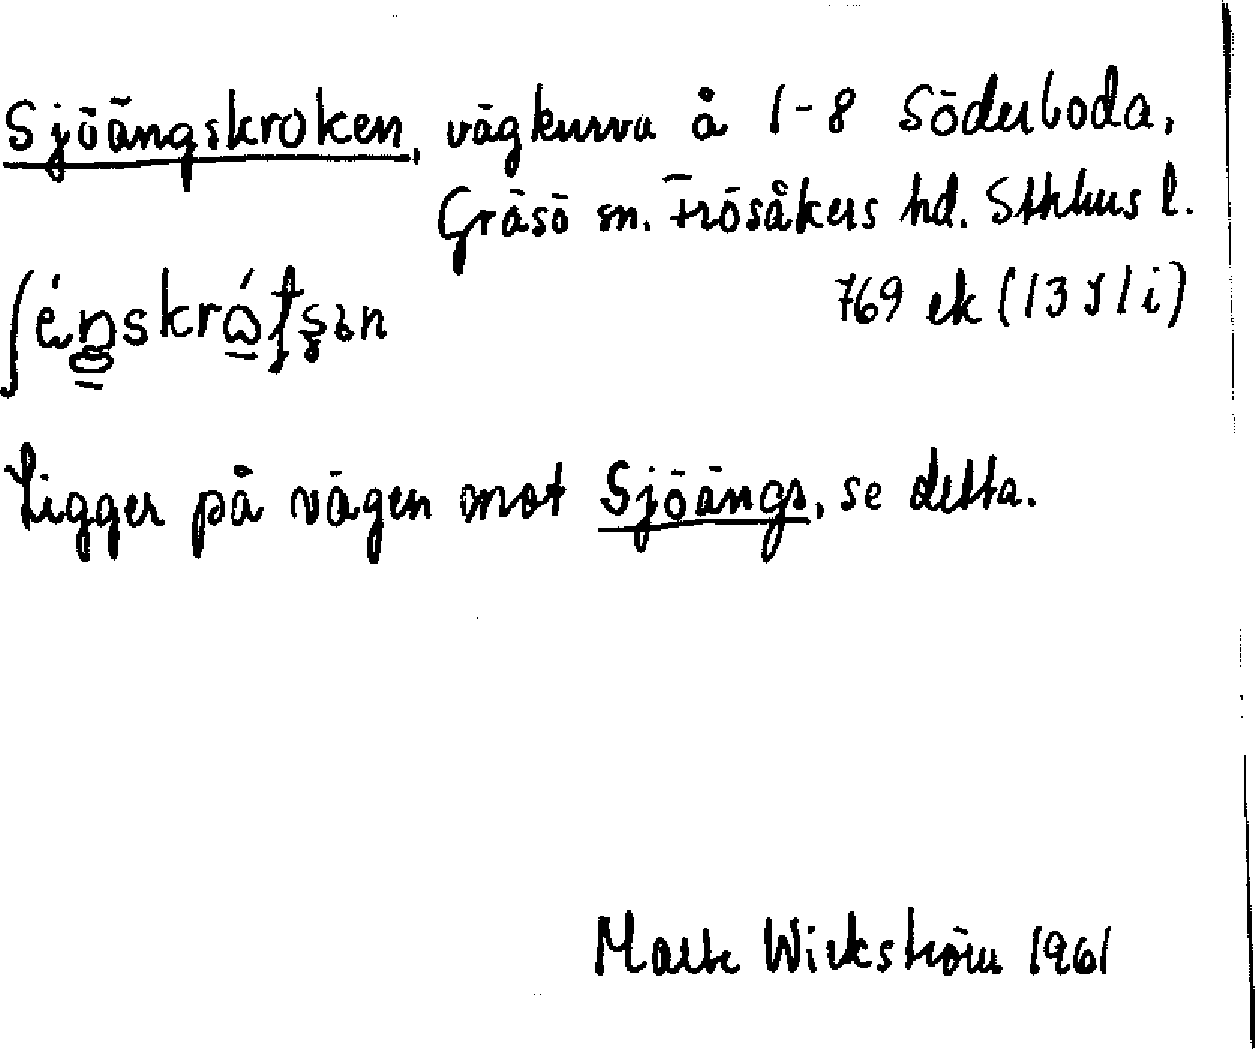 Sjöängskroken, vägkurva å 1-8 Söderboda,
Gräsö sn. Frösåkers hd. Sthlms l.
769 ek (13 I 1 i)
Ligger på vägen mot Sjöängs, se detta.
Wickström 1961